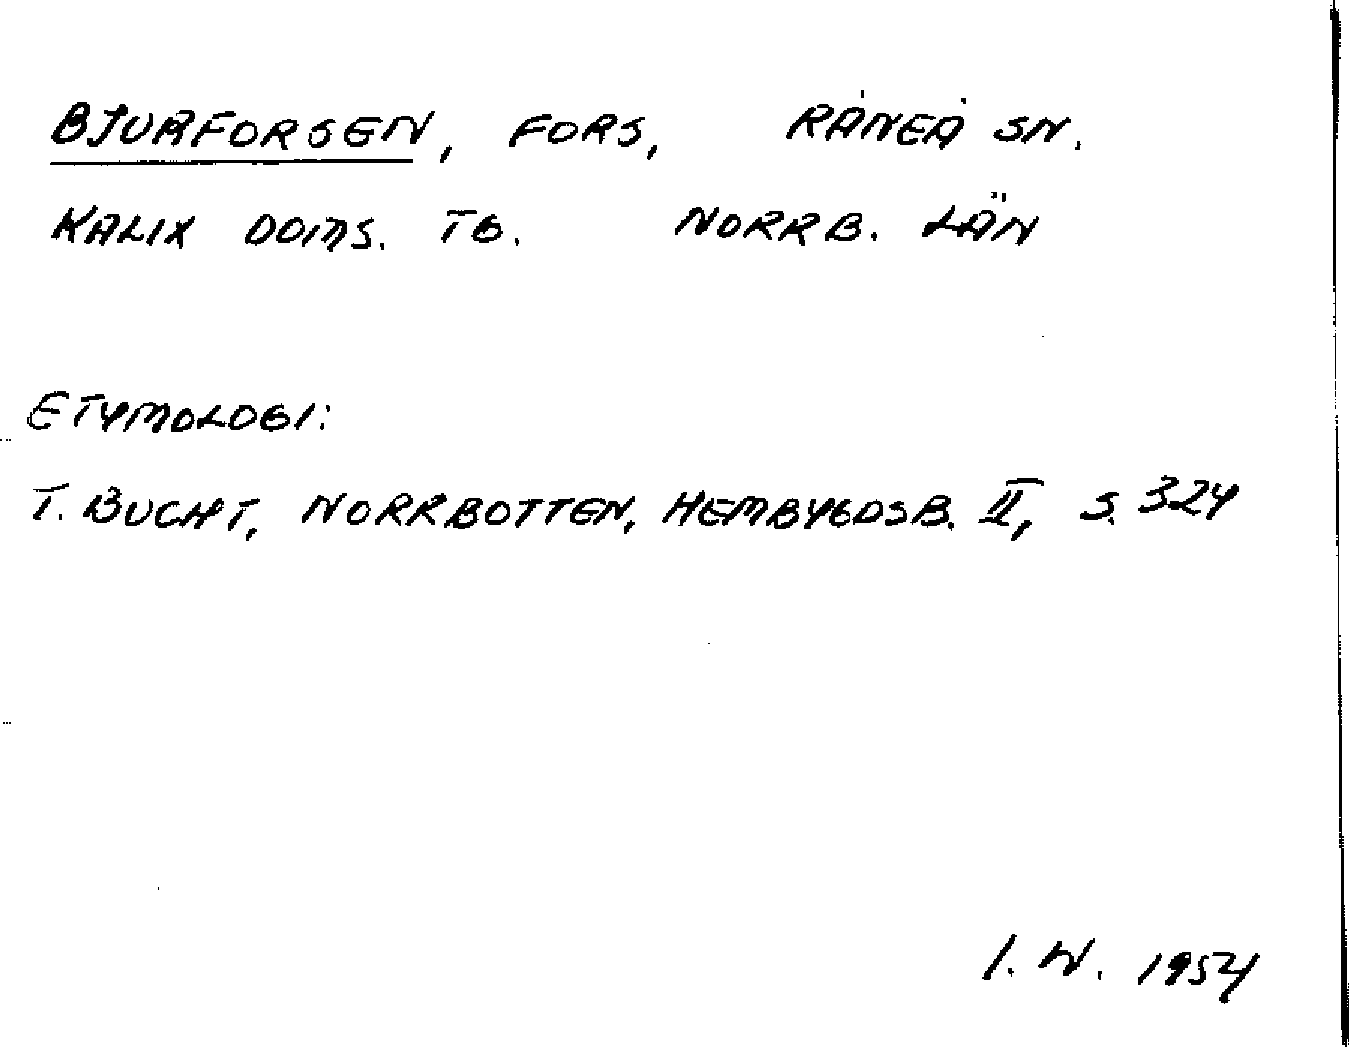 BJURFORSEN, FORS, RÅNEÅ SN.
KALIX DOMS. TG. NORRB. LÄN
ETYMOLOGI:
T. BUCHT, NORRBOTTEN, HEMBYGDSB. II, S. 324
I. W. 1954